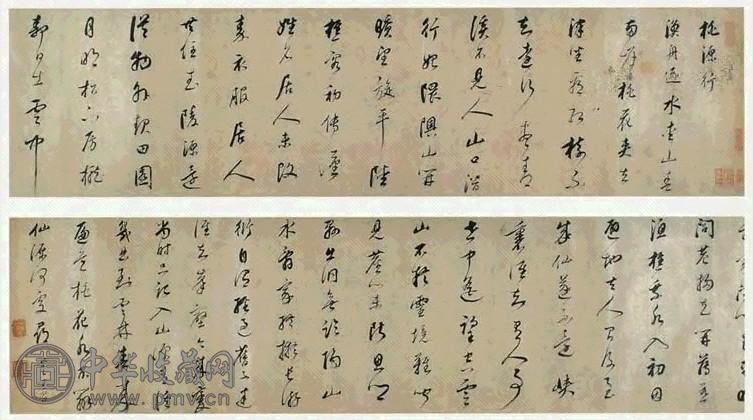 桃源行
漁舟逐水愛山春
兩岸桃花夾去
津坐看紅樹不
知遠行盡青
溪不見人山口潛
行始隈隩山開
曠望旋平陸
樵客初傳漢
姓名居人未改
秦衣服居人
共住武陵源還
從物外起田園
月明松下房櫳
靜日出雲中
閭巷掃花開薄暮
漁樵乘水入初因
避地去人間及至
成仙遂不還峽
裏誰知有人事
世中遙望空雲
山不疑靈境難聞
見塵心未盡思鄉
縣出洞無論隔山
水辭家終擬長游
衍自謂經過舊不迷
安知峰壑今來變
當時只記入山深
幾度到雲林春來
遍是桃花水不辨
仙源何處尋
中华收藏网
www.pmv.cn